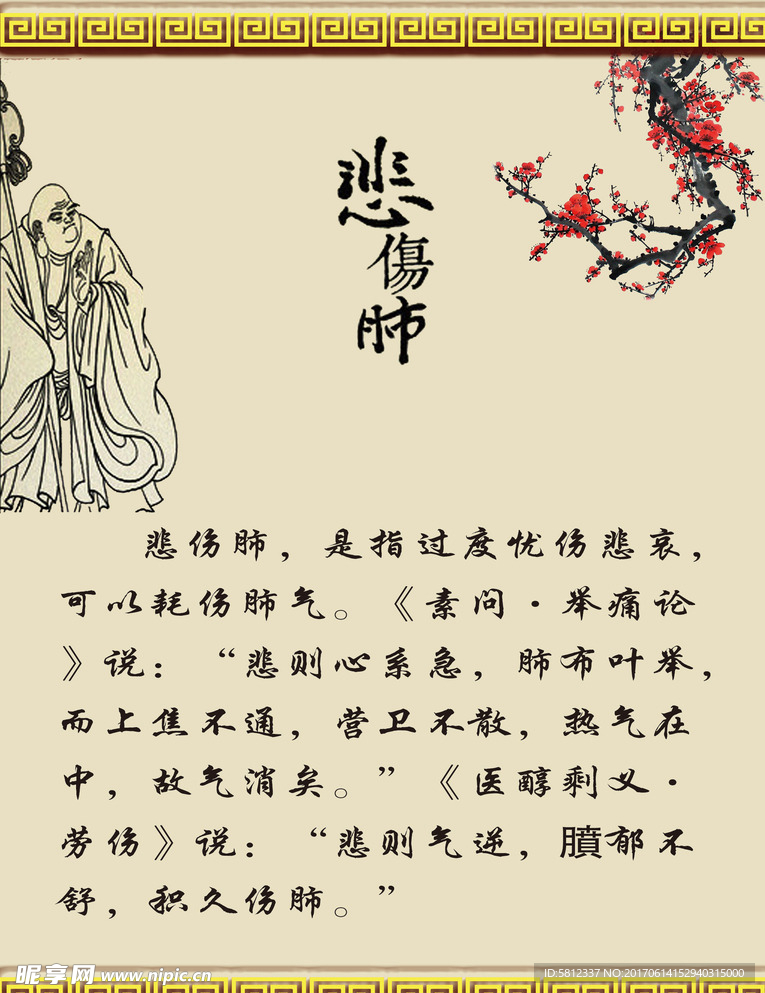 悲
傷
肺
悲伤肺，是指过度忧伤悲哀，
可以耗伤肺气。《素问·举痛论
》说：“悲则心系急，肺布叶举，
而上焦不通，营卫不散，热气在
中，故气消矣。”《医醇剩义·
劳伤》说：“悲则气逆，膹郁不
舒，积久伤肺。”
昵享网 www.nipic.cn
ID:5812337 NO:20170614152940315000